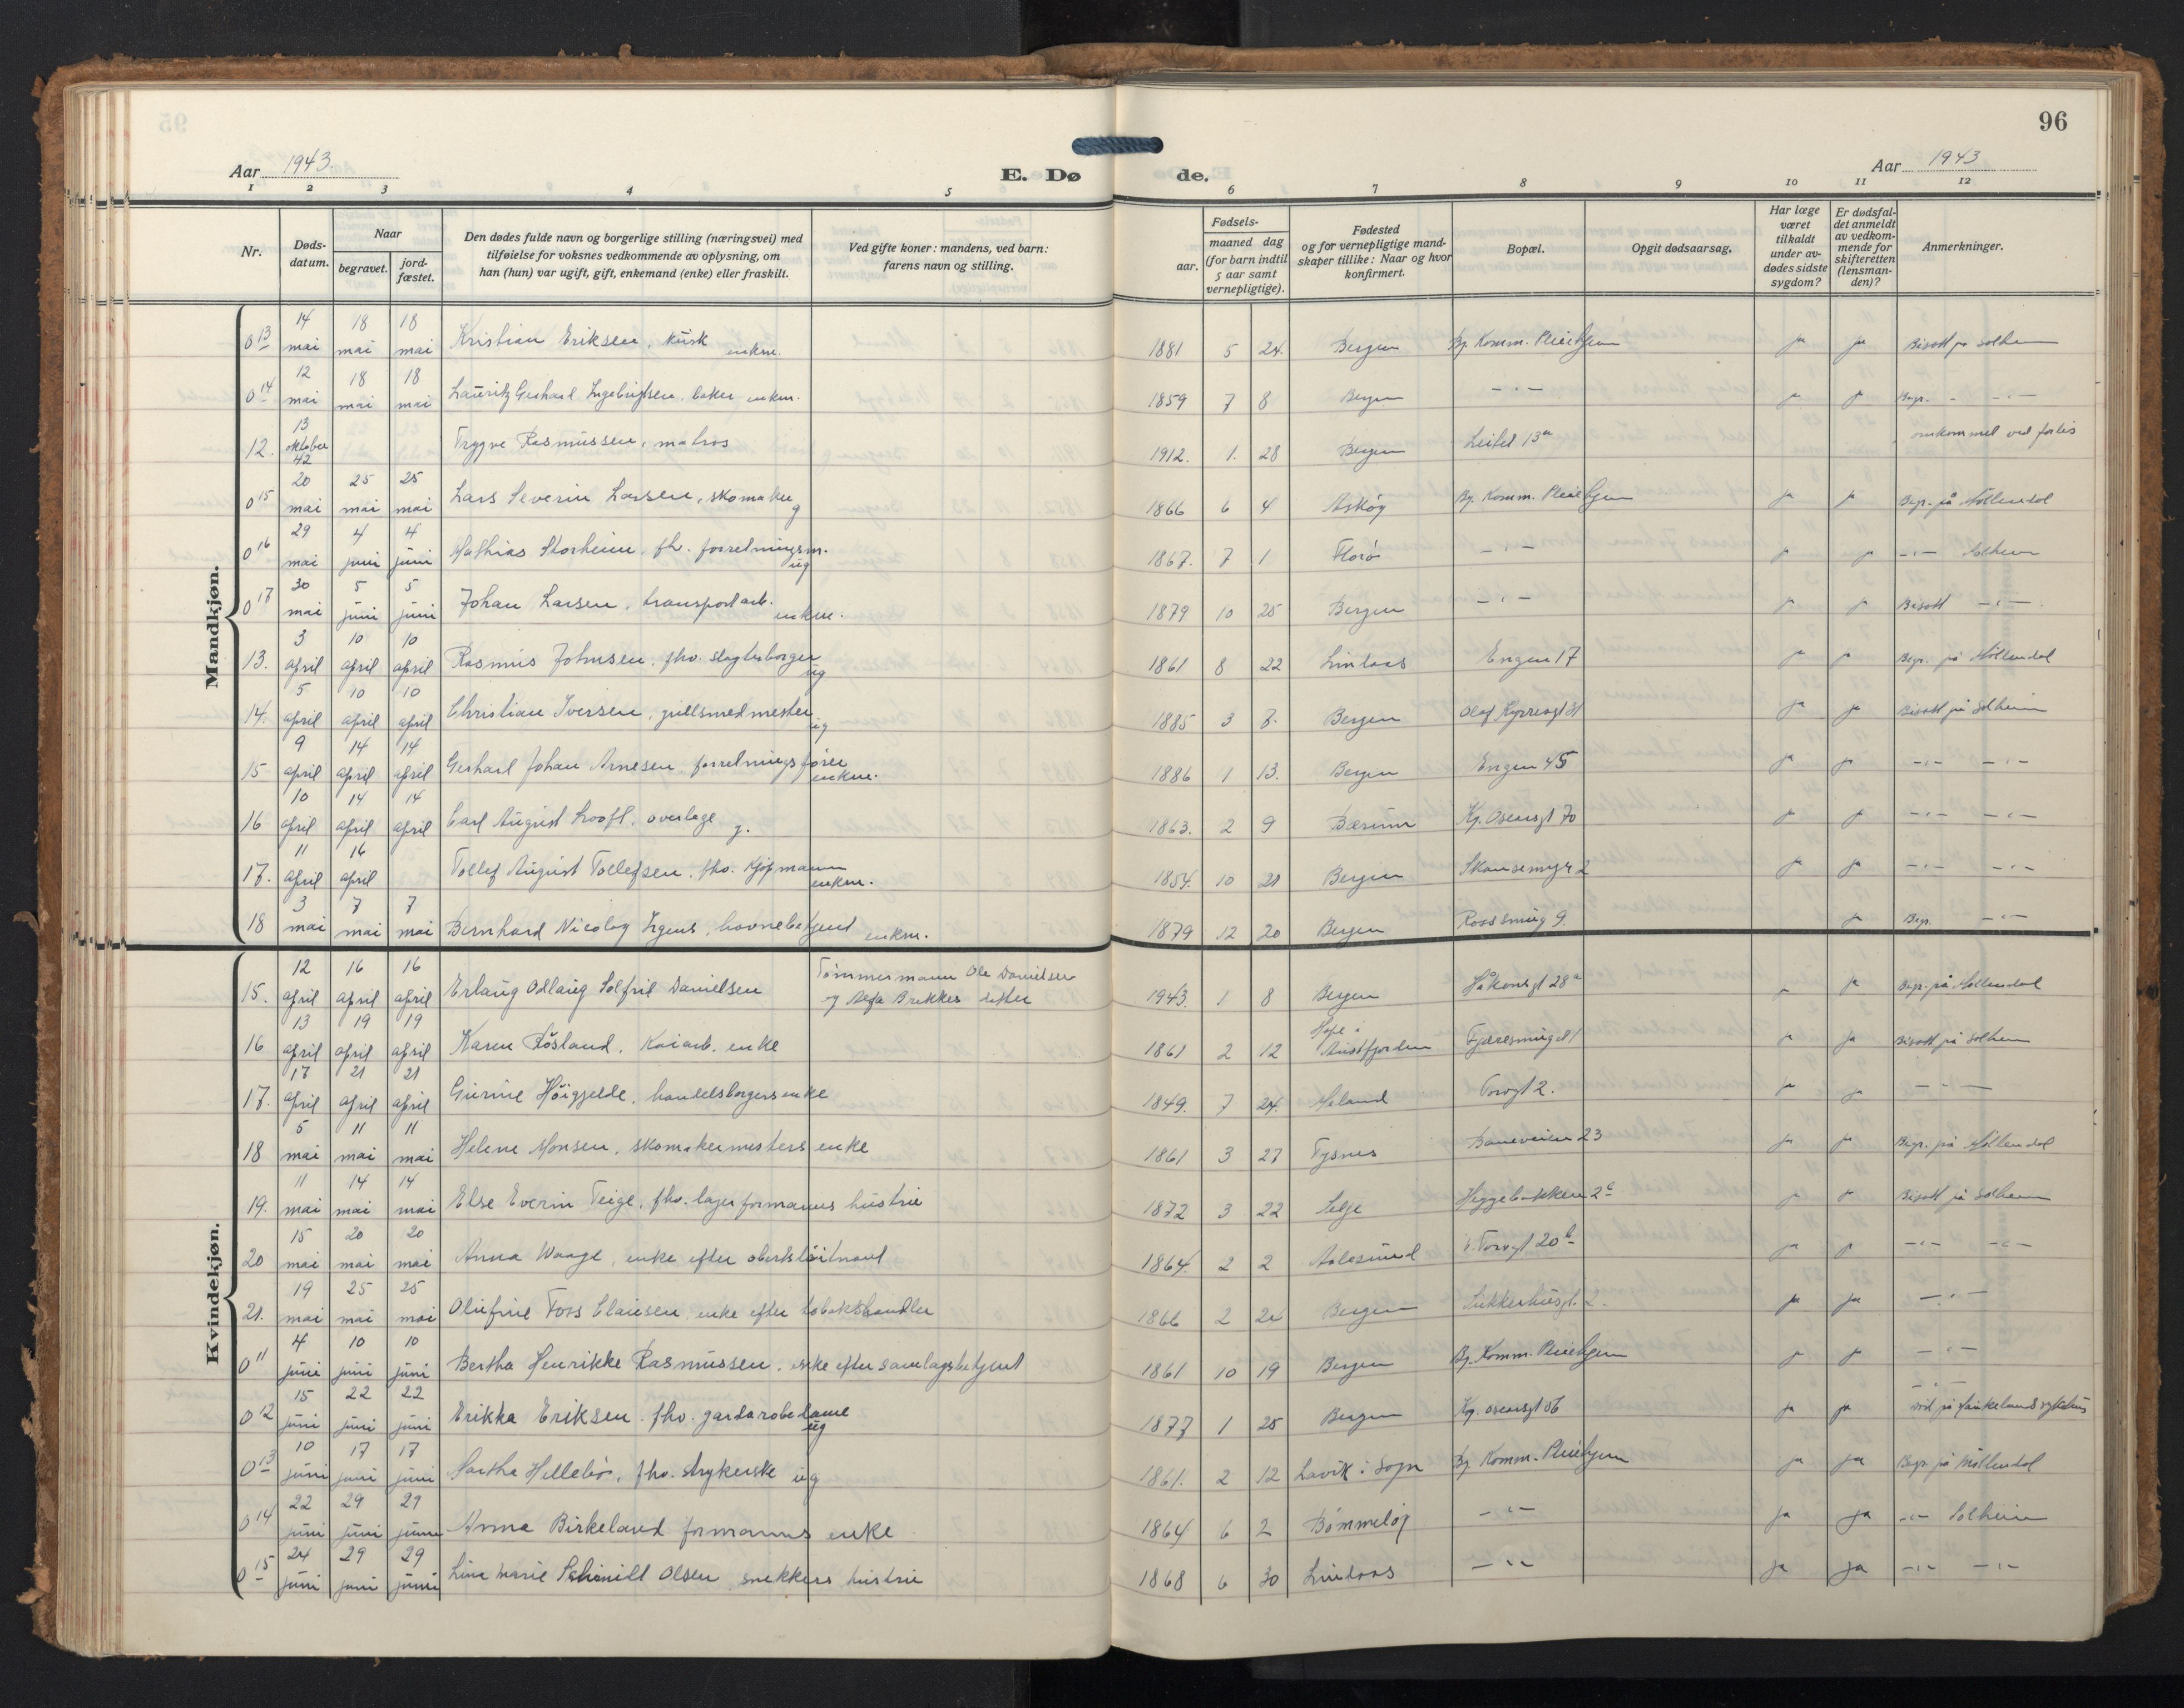 95
96
Aar 1943.
E. Dø
de.
Aar 1943
1 2 3 4 5 6 7 8 9 10 11 12
Nr.
Døds-
datum.
Naar
begravet.
jord-
fæstet.
Den dødes fulde navn og borgerlige stilling (næringsvei) med
tilføielse for voksnes vedkommende av oplysning, om
han (hun) var ugift, gift, enkemand (enke) eller fraskilt.
Ved gifte koner: mandens, ved barn:
farens navn og stilling.
Fødsels-
aar.
maaned dag
(for barn indtil
5 aar samt
vernepligtige).
Fødested
og for vernepligtige mand-
skaper tillike: Naar og hvor
konfirmert.
Bopæl.
Opgit dødsaarsag.
Har læge
været
tilkaldt
under av-
dødes sidste
sygdom?
Er dødsfal-
det anmeldt
av vedkom-
mende for
skifteretten
(lensman-
den)?
Anmerkninger.
Mandkjøn.
0 13 14 mai 18 mai 18 mai Kristian Eriksen, kusk enkm. 1881 5 24. Bergen Bg. Komm. Pleiehjem ja ja Bisatt på Solheim
0 14 12 mai 18 mai 18 mai Lauritz Gerhard Ingebrigtsen, baker enkm. 1859 7 8 Bergen -"- ja ja Begr. - -"-
12. 13 oktober 42 Trygve Rasmussen, matros 1912. 1. 28 Bergen Leitet 13a omkommet ved forlis
0 15 20 mai 25 mai 25 mai Lars Severin Larsen, skomaker g 1866 6 4 Askøy Bg. Komm. Pleiehjem ja ja Begr. på Møllendal
0 16 29 mai 4 juni 4 juni Mathias Storheim, fh. forretningsm. ug 1867. 7 1 Florø -"- ja ja -"- Solheim
0 17 30 mai 5 juni 5 juni Johan Larsen, transportarb. enkm. 1879 10 25 Bergen -"- ja ja Bisatt -"-
13. 3 april 10 april 10 april Rasmus Johnsen, fhv. slagterborger ug 1861 8 22 Lindaas Engen 17 ja ja Begr. på Møllendal
14. 5 april 10 april 10 april Christian Iversen, gullsmedmester ug 1885 3 7. Bergen Olaf Kyrresgt 31 ja ja Bisatt på Solheim
15 9 april 14 april 14 april Gerhard Johan Arnesen, forretningsfører enkm. 1886 1 13. Bergen Engen 45 ja ja -"- -"-
16 10 april 14 april 14 april Carl August Looft, overlæge g. 1863. 2 9 Bærum Kg. Oscarsgt 70 ja ja -"- -"-
17. 11 april 16 april Tollef August Tollefsen, fhv. kjøpmann enkm. 1854. 10 21 Bergen Skansemyr 2 ja ja -"- -"-
18 3 mai 7 mai 7 mai Bernhard Nicolay Irgens, havnebetjent enkm. 1879 12 20 Bergen Rosssmug 9. ja Begr. -"-
Kvindekjøn.
15. 12 april 16 april 16 april Erlaug Odlaug Solfrid Danielsen Tømmermann Ole Danielsen
og Alfa Brekkes datter 1943. 1 8 Bergen Håkonsgt 28a ja ja Begr. på Møllendal
16 13 april 19 april 19 april Karen Røsland, kaiarb. enke 1861 2 12 Hope i
Austfjorden ja ja Bisatt på Solheim
17. 17 april 21 april 21 april Gurine Høigjelde, handelsborgers enke 1849. 7 24. Meland Torvgt 2. ja ja -"-
18 5 mai 11 mai 11 mai Helene Monsen, skomakermesters enke 1861 3 27 Tysnes Baneveien 23 ja ja Begr. på Møllendal
19. 11 mai 14 mai 14 mai Else Everin Teige, fhv. lagerformanns hustru 1872 3 22 Selje Heggebakken 2c ja ja Bisatt på Solheim
20 15 mai 20 mai 20 mai Anna Waage, enke efter oberstløitnant 1864. 2 2 Aalesund Torvgt 20b ja ja -"- -"-
21. 19 mai 25 mai 25 mai Olufine Foss Clausen, enke efter tobakkshandler 1866 2 24 Bergen Sukkerhusgt. 2. ja ja -"-
0 11 4 juni 10 juni 10 juni Bertha Henrikke Rasmussen, enke efter samlagsbetjent 1861 10 19 Bergen Bg. Komm. Pleiehjem ja ja -"-
0 12 15 juni 22 juni 22 juni Erikka Eriksen, fhv. garderobedame ug 1877 1 25 Bergen Kg. Oscarsgt 56 ja ja -"-
død på Haukeland sykehus
0 13 10 juni 17 juni 17 juni Martha Hellebø, fhv. strykerske ug 1861. 2 12 Lavik i Sogn Bg. Komm. Pleiehjem ja ja Begr. på Møllendal
0 14 22 juni 29 juni 29 juni Anna Birkeland formanns enke 1864 6 2 Bømmeløy -"- ja ja -"- Solheim
0 15 24 juni 29 juni 29 juni Lina Marie Schmidt Olsen snekkers hustru 1868 6 30 Lindaas -"- ja ja -"- -"-